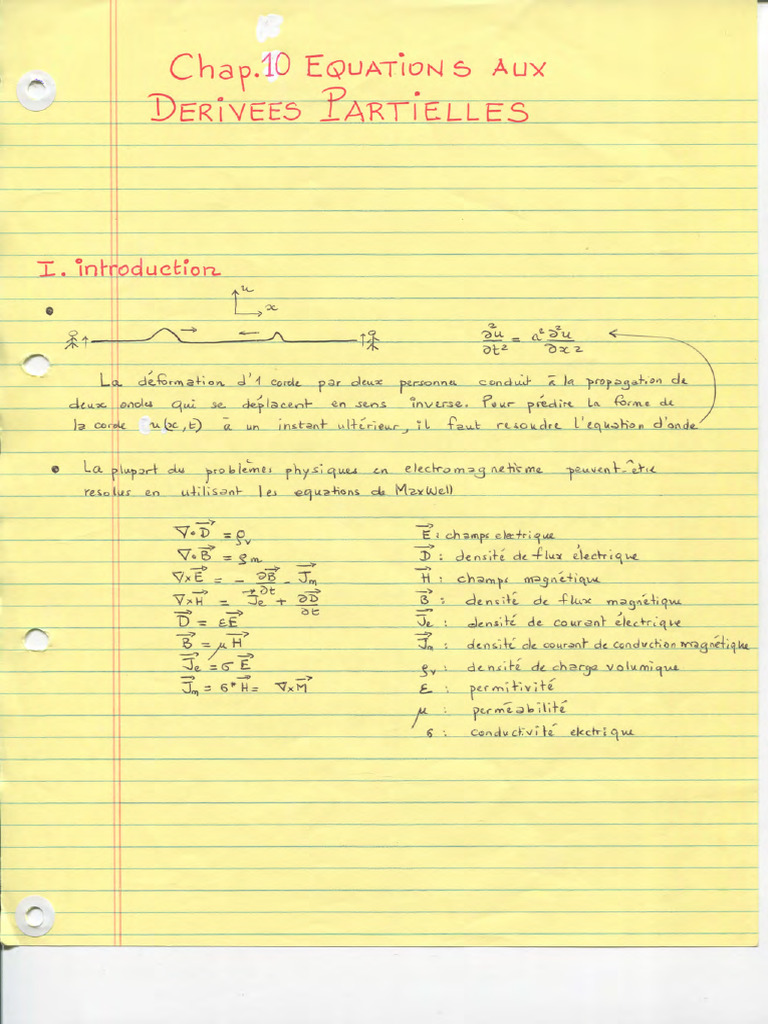 Chap.10 EQUATIONS AUX
DERIVEES PARTIELLES
I. introduction
u
x
∂²u/∂t² = a² ∂²u/∂x²
La déformation d'1 corde par deux personne conduit à la propagation de
deux ondes qui se déplacent en sens inverse. Pour prédire la forme de
la corde u(x,t) à un instant ultérieur, il faut resoudre l'equation d'onde
• La plupart du problèmes physiques en electromagnetisme peuvent-être
resolus en utilisant les equations de Maxwell
∇•D⃗ = ρv
E⃗ : champs electrique
∇•B⃗ = ρm
D⃗ : densité de flux électrique
∇×E⃗ = - ∂B⃗/∂t - J⃗m
H⃗ : champs magnétique
∇×H⃗ = J⃗e + ∂D⃗/∂t
B⃗ : densité de flux magnétique
D⃗ = εE⃗
J⃗e : densité de courant électrique
B⃗ = μH⃗
J⃗m : densité de courant de conduction magnétique
J⃗e = σE⃗
ρv : densité de charge volumique
J⃗m = σ*H⃗ = ∇×M⃗
ε : permitivité
μ : perméabilité
σ : conductivité electrique